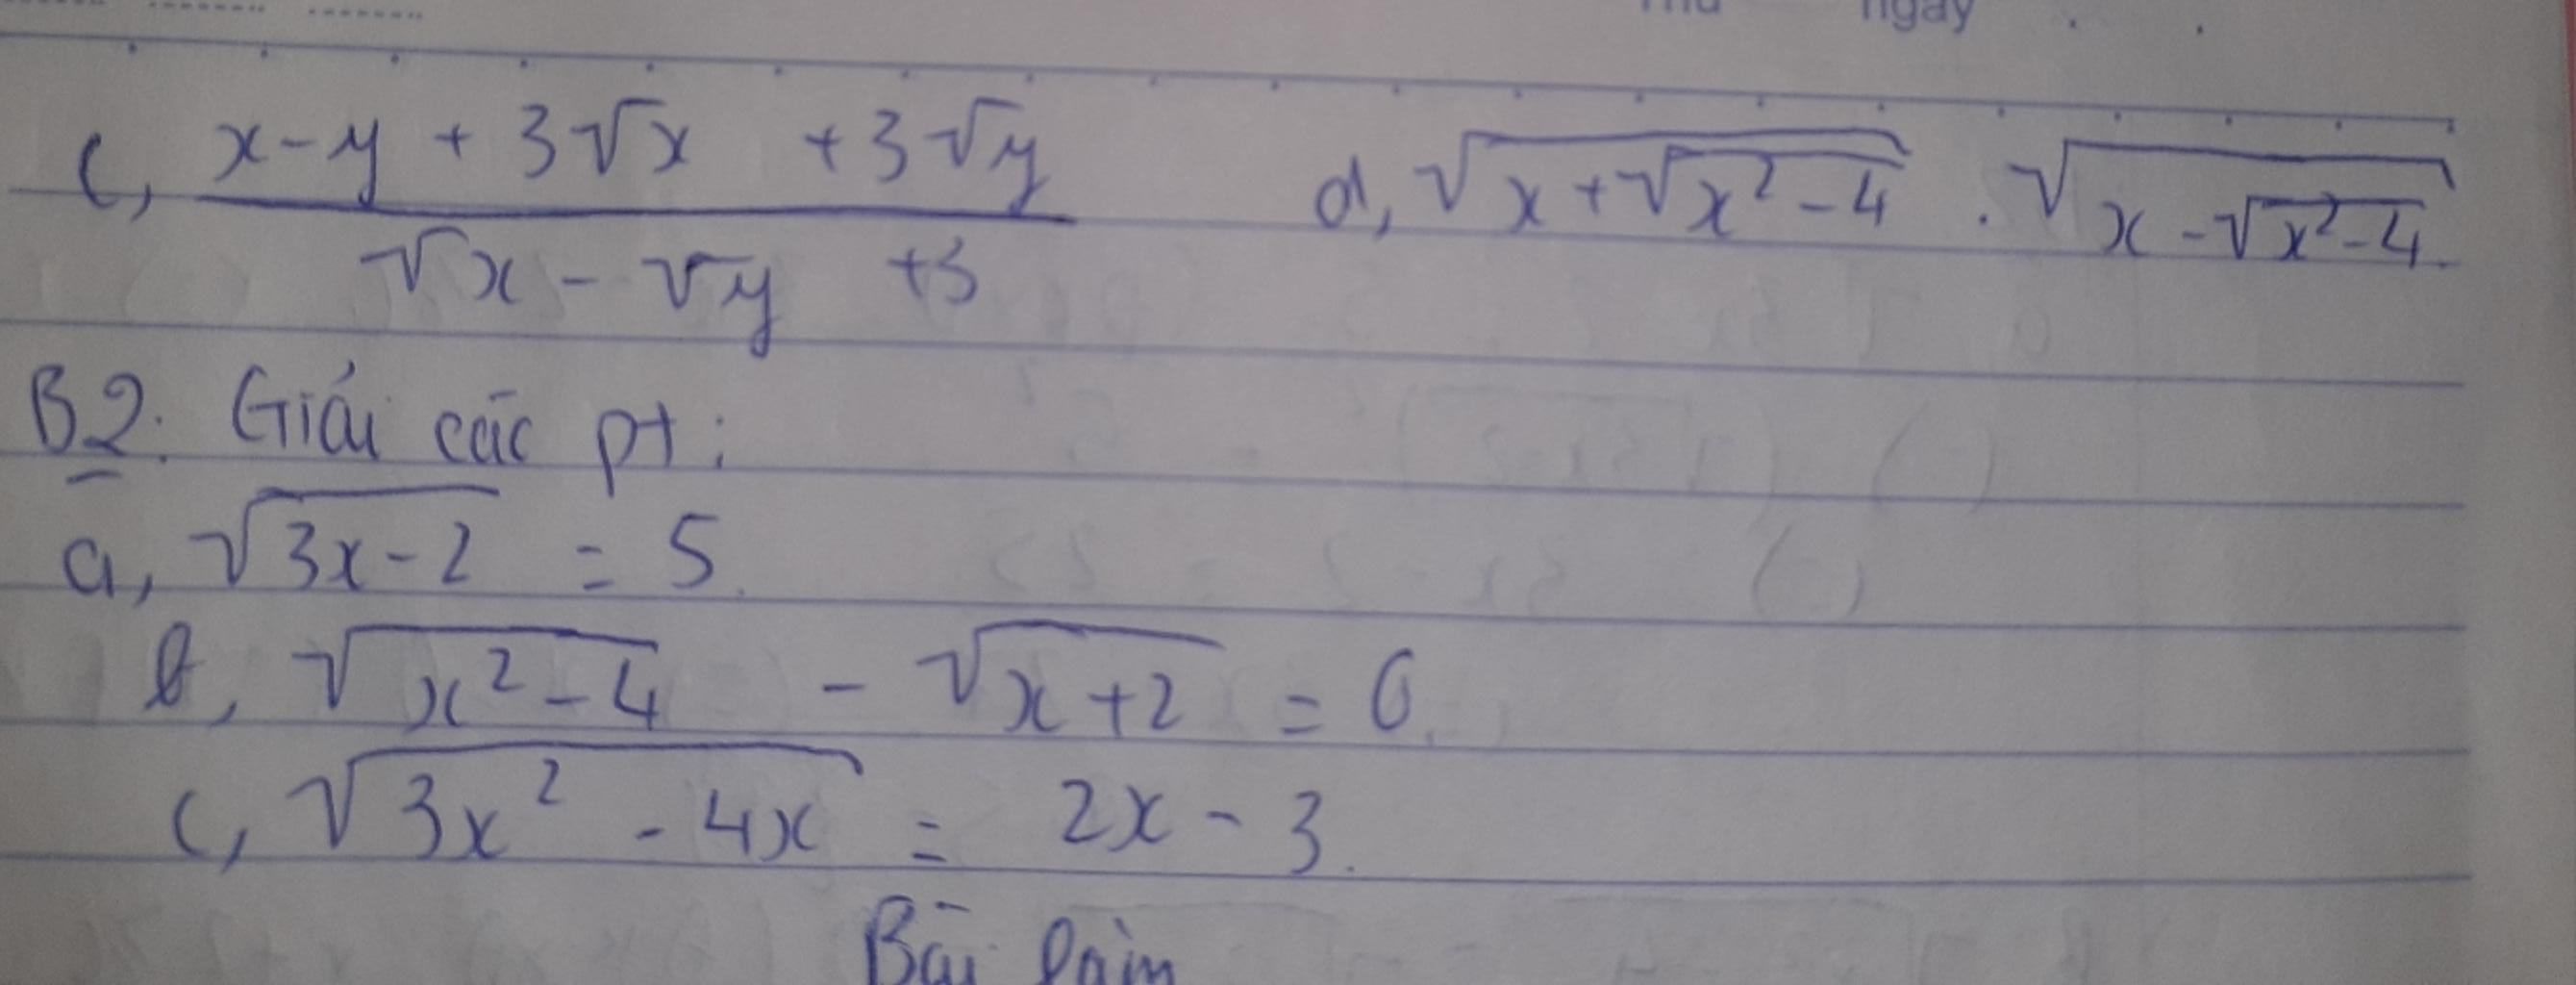 Thứ ngày
c, (x-y + 3√x + 3√y)/(√x - √y + 3) d, √(x+√(x²-4)) . √(x-√(x²-4)).
B2: Giải các pt:
a, √(3x-2) = 5.
b, √(x²-4) - √(x+2) = 0.
c, √(3x² - 4x) = 2x - 3.
Bài làm